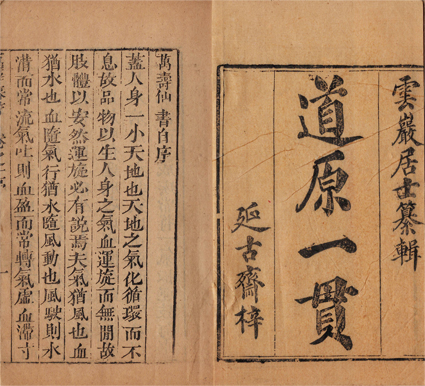 雲巖居士纂輯
道原一貫
延古齋梓
萬壽仙書自序
蓋人身一小天地也天地之氣化循環而不
息故品物以生人身之氣血運旋而無閒故
肢體以安然運旋必有說焉夫氣猶風也血
猶水也血隨氣行猶水隨風動也風駛則水
滑而常流氣吐則血盈而常轉氣虛血滯寸